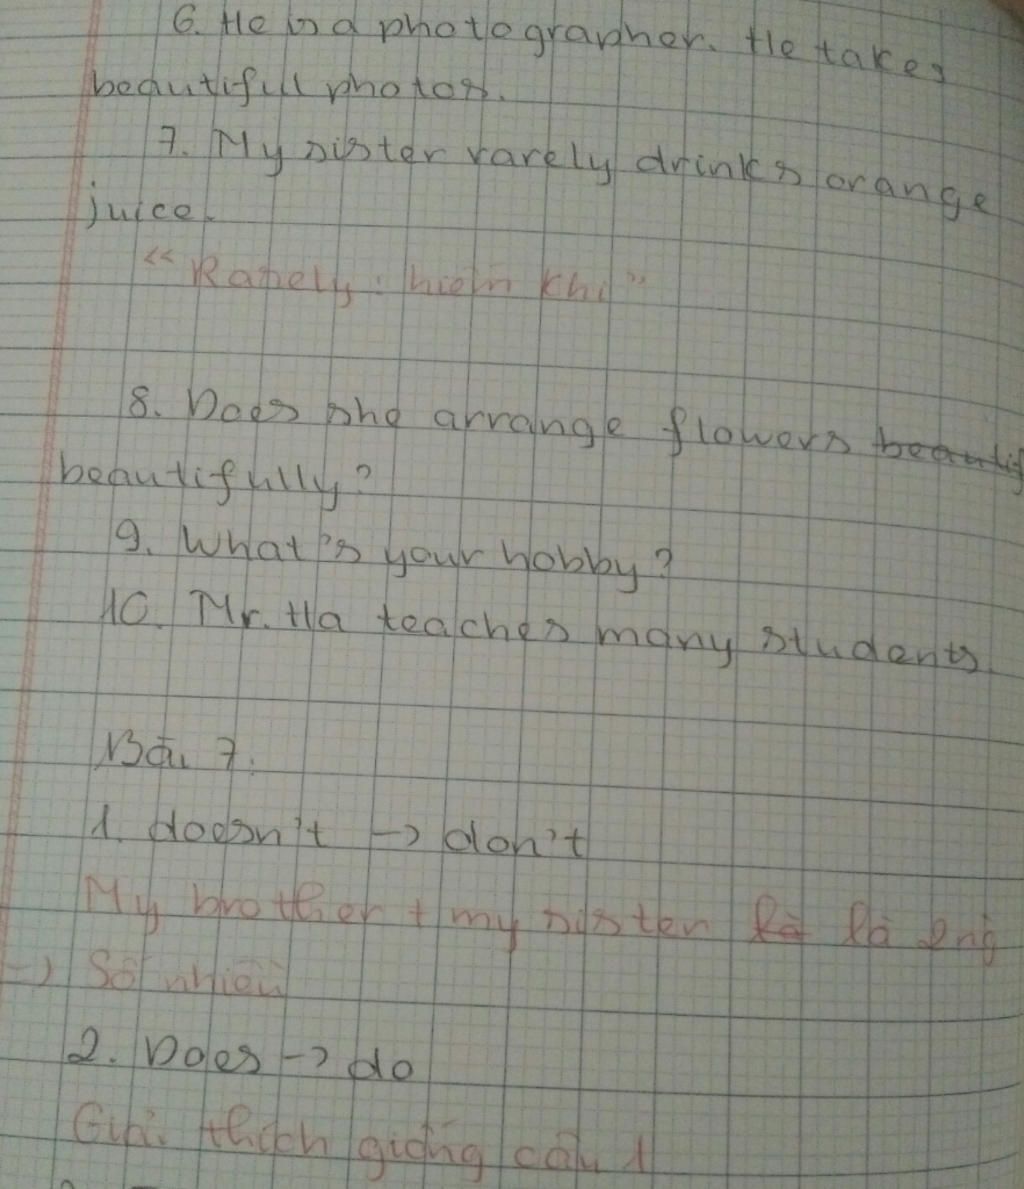 6. He is a photographer. He takes
beautifull photos.
7. My sister rarely drinks orange
juice.
"Rarely: hiếm khi"
8. Does she arrange flowers
beautifully?
9. What's your hobby?
10. Mr. Ha teaches many students
Bài 7.
1. doesn't → don't
My brother + my sister là
→ Số nhiều
2. Does → do
Giải thích giống câu 1